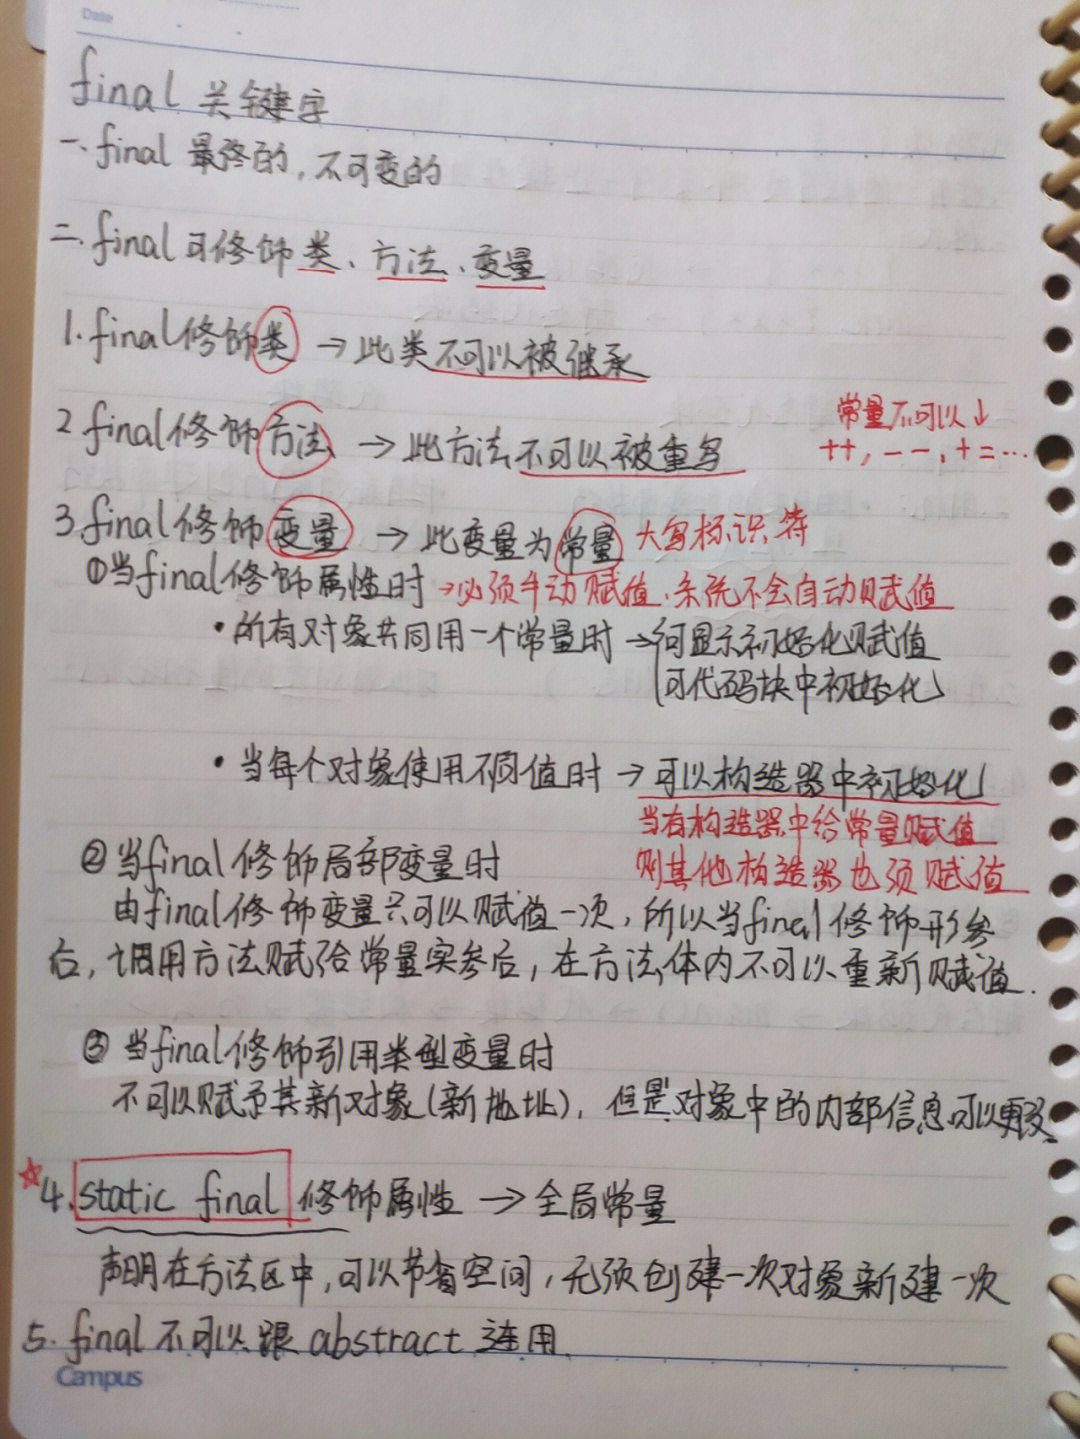 Date
final 关键字
一、final 最终的,不可变的
二、final 可修饰类、方法、变量
1. final修饰类 → 此类不可以被继承
2 final修饰方法 → 此方法不可以被重写
常量不可以↓
++, --, +=...
3. final修饰变量 → 此变量为常量 大写标识符
①当final修饰属性时 →必须手动赋值.系统不会自动赋值
• 所有对象共同用一个常量时 → 可显示初始化赋值
可代码块中初始化
• 当每个对象使用不同值时 → 可以构造器中初始化
当有构造器中给常量赋值
则其他构造器也须赋值
②当final修饰局部变量时
由final修饰变量只可以赋值一次,所以当final修饰形参
后,调用方法赋给常量实参后,在方法体内不可以重新赋值.
③当final修饰引用类型变量时
不可以赋予其新对象(新地址),但是对象中的内部信息可以更改.
☆4. static final 修饰属性 → 全局常量
声明在方法区中,可以节省空间,无须创建一次对象新建一次
5. final 不可以跟 abstract 连用.
Campus